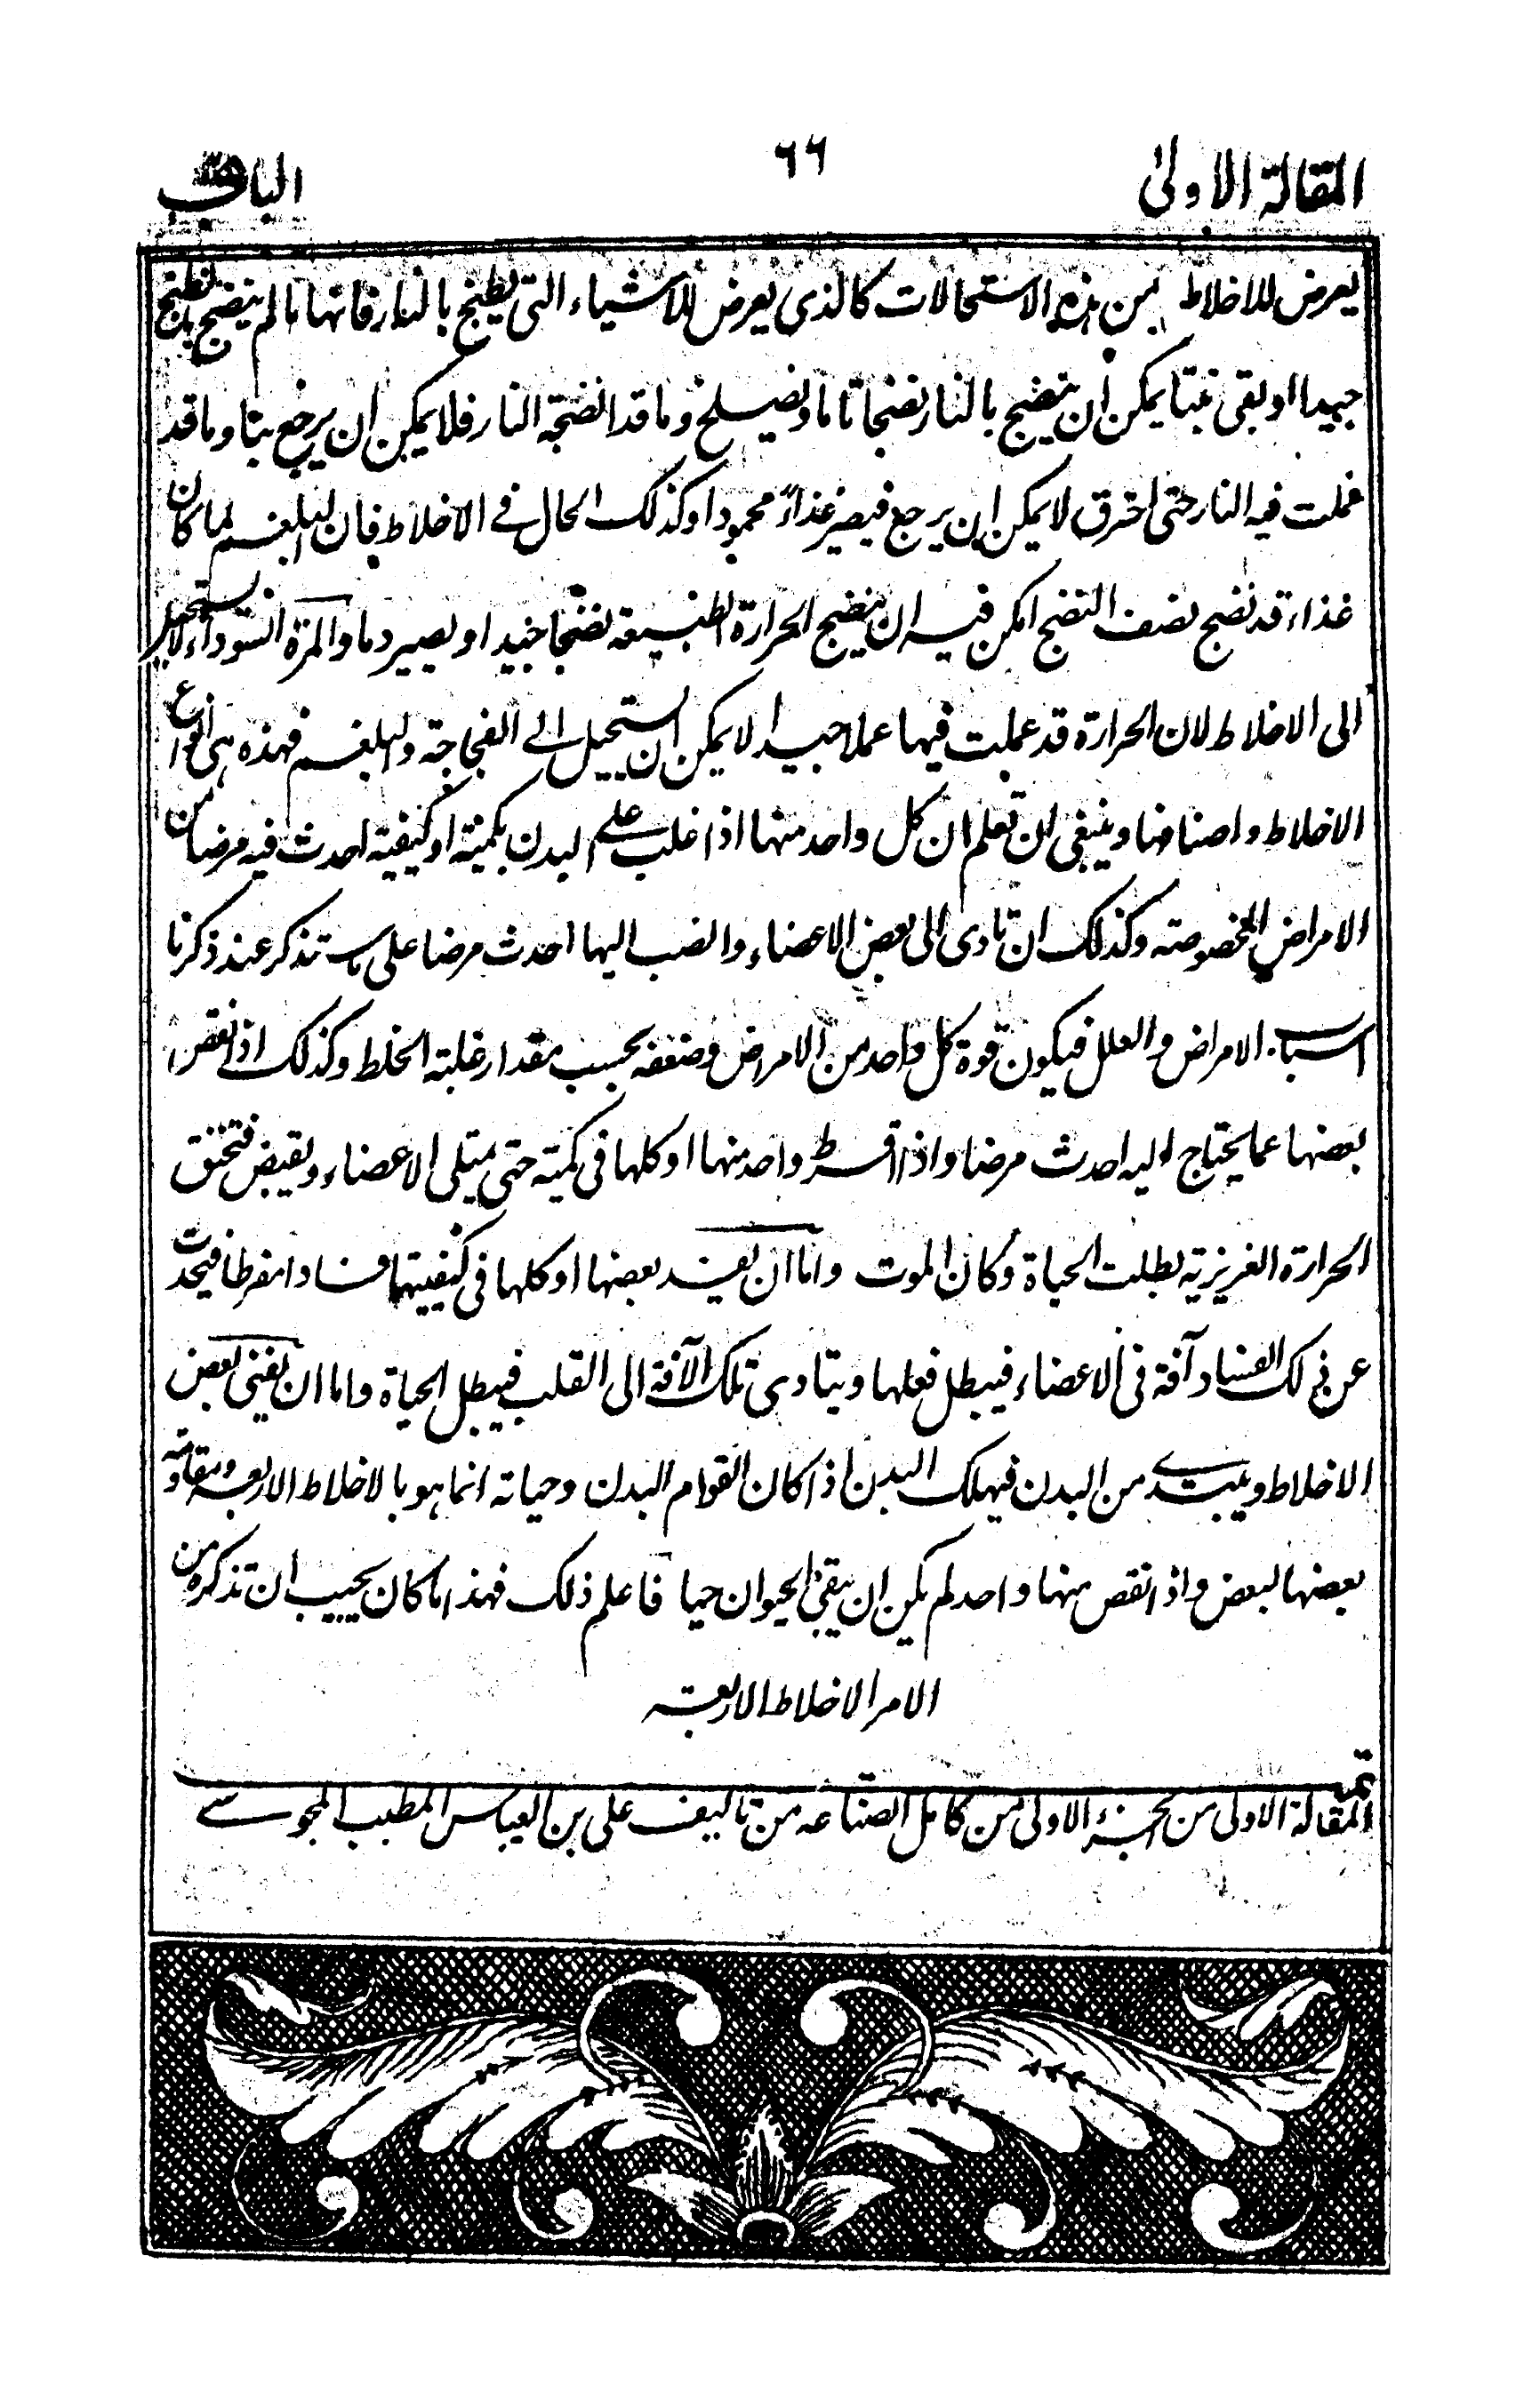 المقالة الاولى ٦٦ الباب
يعرض للاخلاط من هذه الاستحالات كالذى يعرض للاشياء التى يطبخ بالنار فانها ما لم ينضج بالطبخ
جيدا او بقى نيتا يمكن ان ينضج بالنار نضجا تاما ويصلح وما قد انضجته النار فلا يمكن ان يرجع نيتا وما قد
عملت فيه النار حتى احترق لا يمكن ان يرجع فيصير غذاءً محمودا وكذلك الحال فى الاخلاط فان البلغم لما كان
غذاء قد نضج نصف النضج امكن فيه ان ينضج الحرارة الطبيعية نضجا جيدا ويصير دما والمرة السوداء لا يستحيل
الى الاخلاط لان الحرارة قد عملت فيها عملا جيدا لا يمكن ان يستحيل الى الفجاجة والبلغم فهذه هى انواع
الاخلاط واصنافها وينبغى ان تعلم ان كل واحد منها اذا غلب على البدن بكميته او كيفيته احدث فيه مرضا من
الامراض المخصوصته وكذلك ان تادى الى بعض الاعضاء وانصب اليها احدث مرضا على ما ستذكر عند ذكرنا
اسباب الامراض والعلل فيكون قوة كل واحد من الامراض وضعفه بحسب مقدار غلبة الخلط وكذلك اذا نقص
بعضها عما يحتاج اليه احدث مرضا واذا افرط واحد منها او كلها فى كميته حتى يمتلى الاعضاء ويقبض فتختنق
الحرارة الغريزية بطلت الحياة وكان الموت واما ان يفسد بعضها او كلها فى كيفيتها فسادا مفرطا فيحدث
عن ذلك الفساد آفة فى الاعضاء فيبطل فعلها ويتادى تلك الآفة الى القلب فيبطل الحياة واما ان يفنى بعض
الاخلاط ويبتدى من البدن فيهلك البدن اذ كان القوام البدن وحياته انما هو بالاخلاط الاربعة ومقاومة
بعضها لبعض واذا نقص منها واحد لم يمكن ان يبقى الحيوان حيا فاعلم ذلك فهذا ما كان يجب ان تذكره من
الامر الاخلاط الاربعة
تمت المقالة الاولى من الجزء الاولى من كامل الصناعه من تاليف على بن العباس المطبب المجوسى